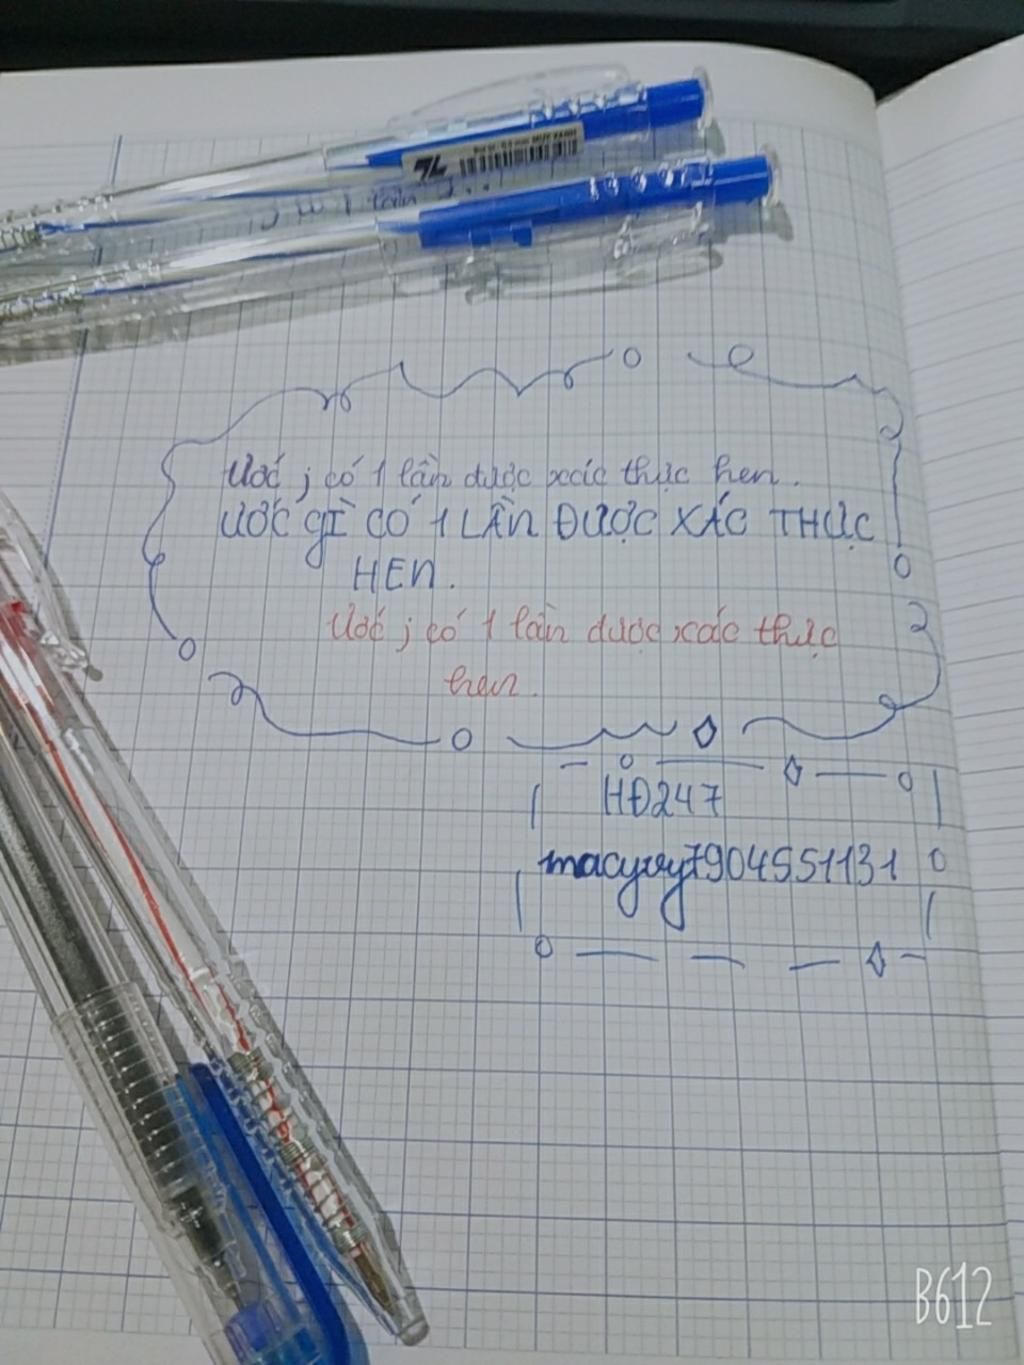 lần
Ước j có 1 lần được xác thực hen.
ƯỚC GÌ CÓ 1 LẦN ĐƯỢC XÁC THỰC
HEN.
Ước j có 1 lần được xác thực
hen.
HĐ247
macyvy7904551131
B612